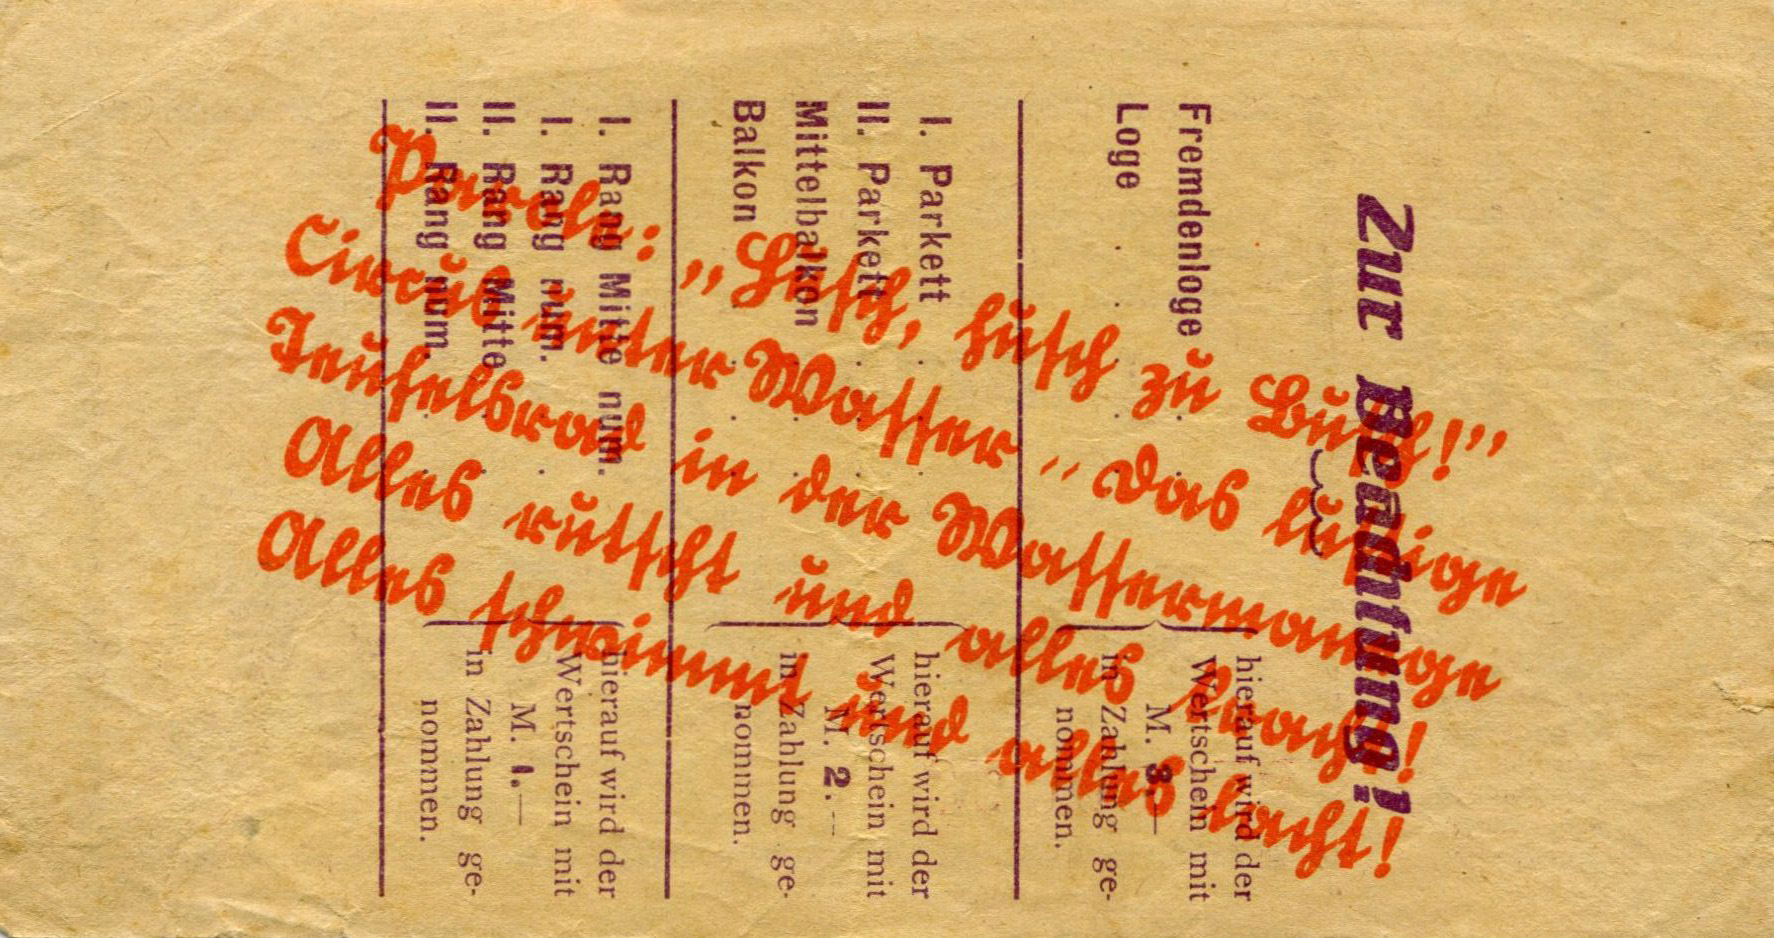 Zur Beachtung!
Fremdenloge . .
Loge . . . .
hierauf wird der
Wertschein mit
M. 3.—
in Zahlung ge-
nommen.
I. Parkett . . .
II. Parkett . . .
Mittelbalkon . . .
Balkon . . . .
hierauf wird der
Wertschein mit
M. 2.—
in Zahlung ge-
nommen.
I. Rang Mitte num.
I. Rang num. . .
II. Rang Mitte . .
II. Rang num. . .
hierauf wird der
Wertschein mit
M. 1.—
in Zahlung ge-
nommen.
Parole: „Husch, husch zu Busch!"
Circus unter Wasser „ das lustige
Teufelsrad in der Wassermanege
Alles rutscht und alles kracht!
Alles schwimmt und alles lacht!